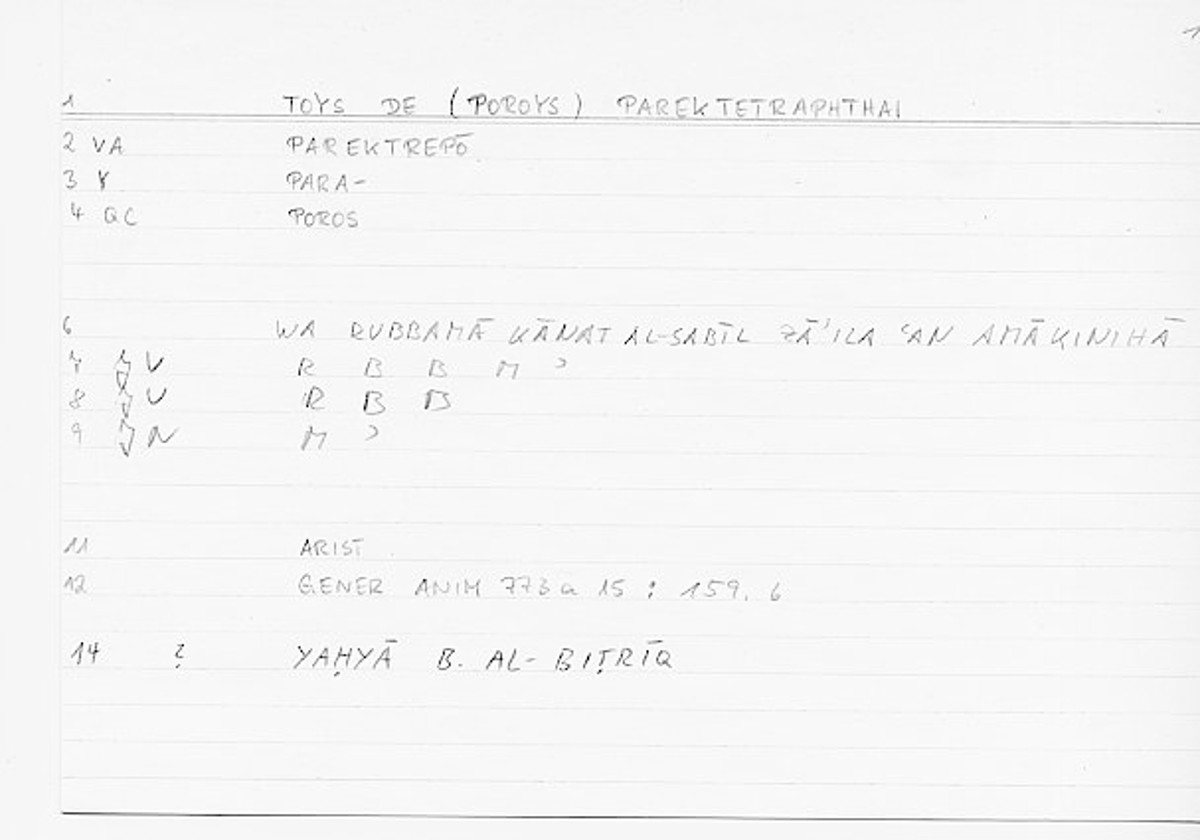 1
1 TOYS DE (POROYS) PAREKTETRAPHTHAI
2 VA PAREKTREPŌ
3 Y PARA-
4 QC POROS
6 WA RUBBAMĀ KĀNAT AL-SABĪL ZĀʾILA ʿAN AMĀKINIHĀ
7 V R B B M ʾ
8 V R B B
9 N M ʾ
11 ARIST
12 GENER ANIM 773 a 15 : 159. 6
14 ? YAḤYĀ B. AL-BIṬRĪQ